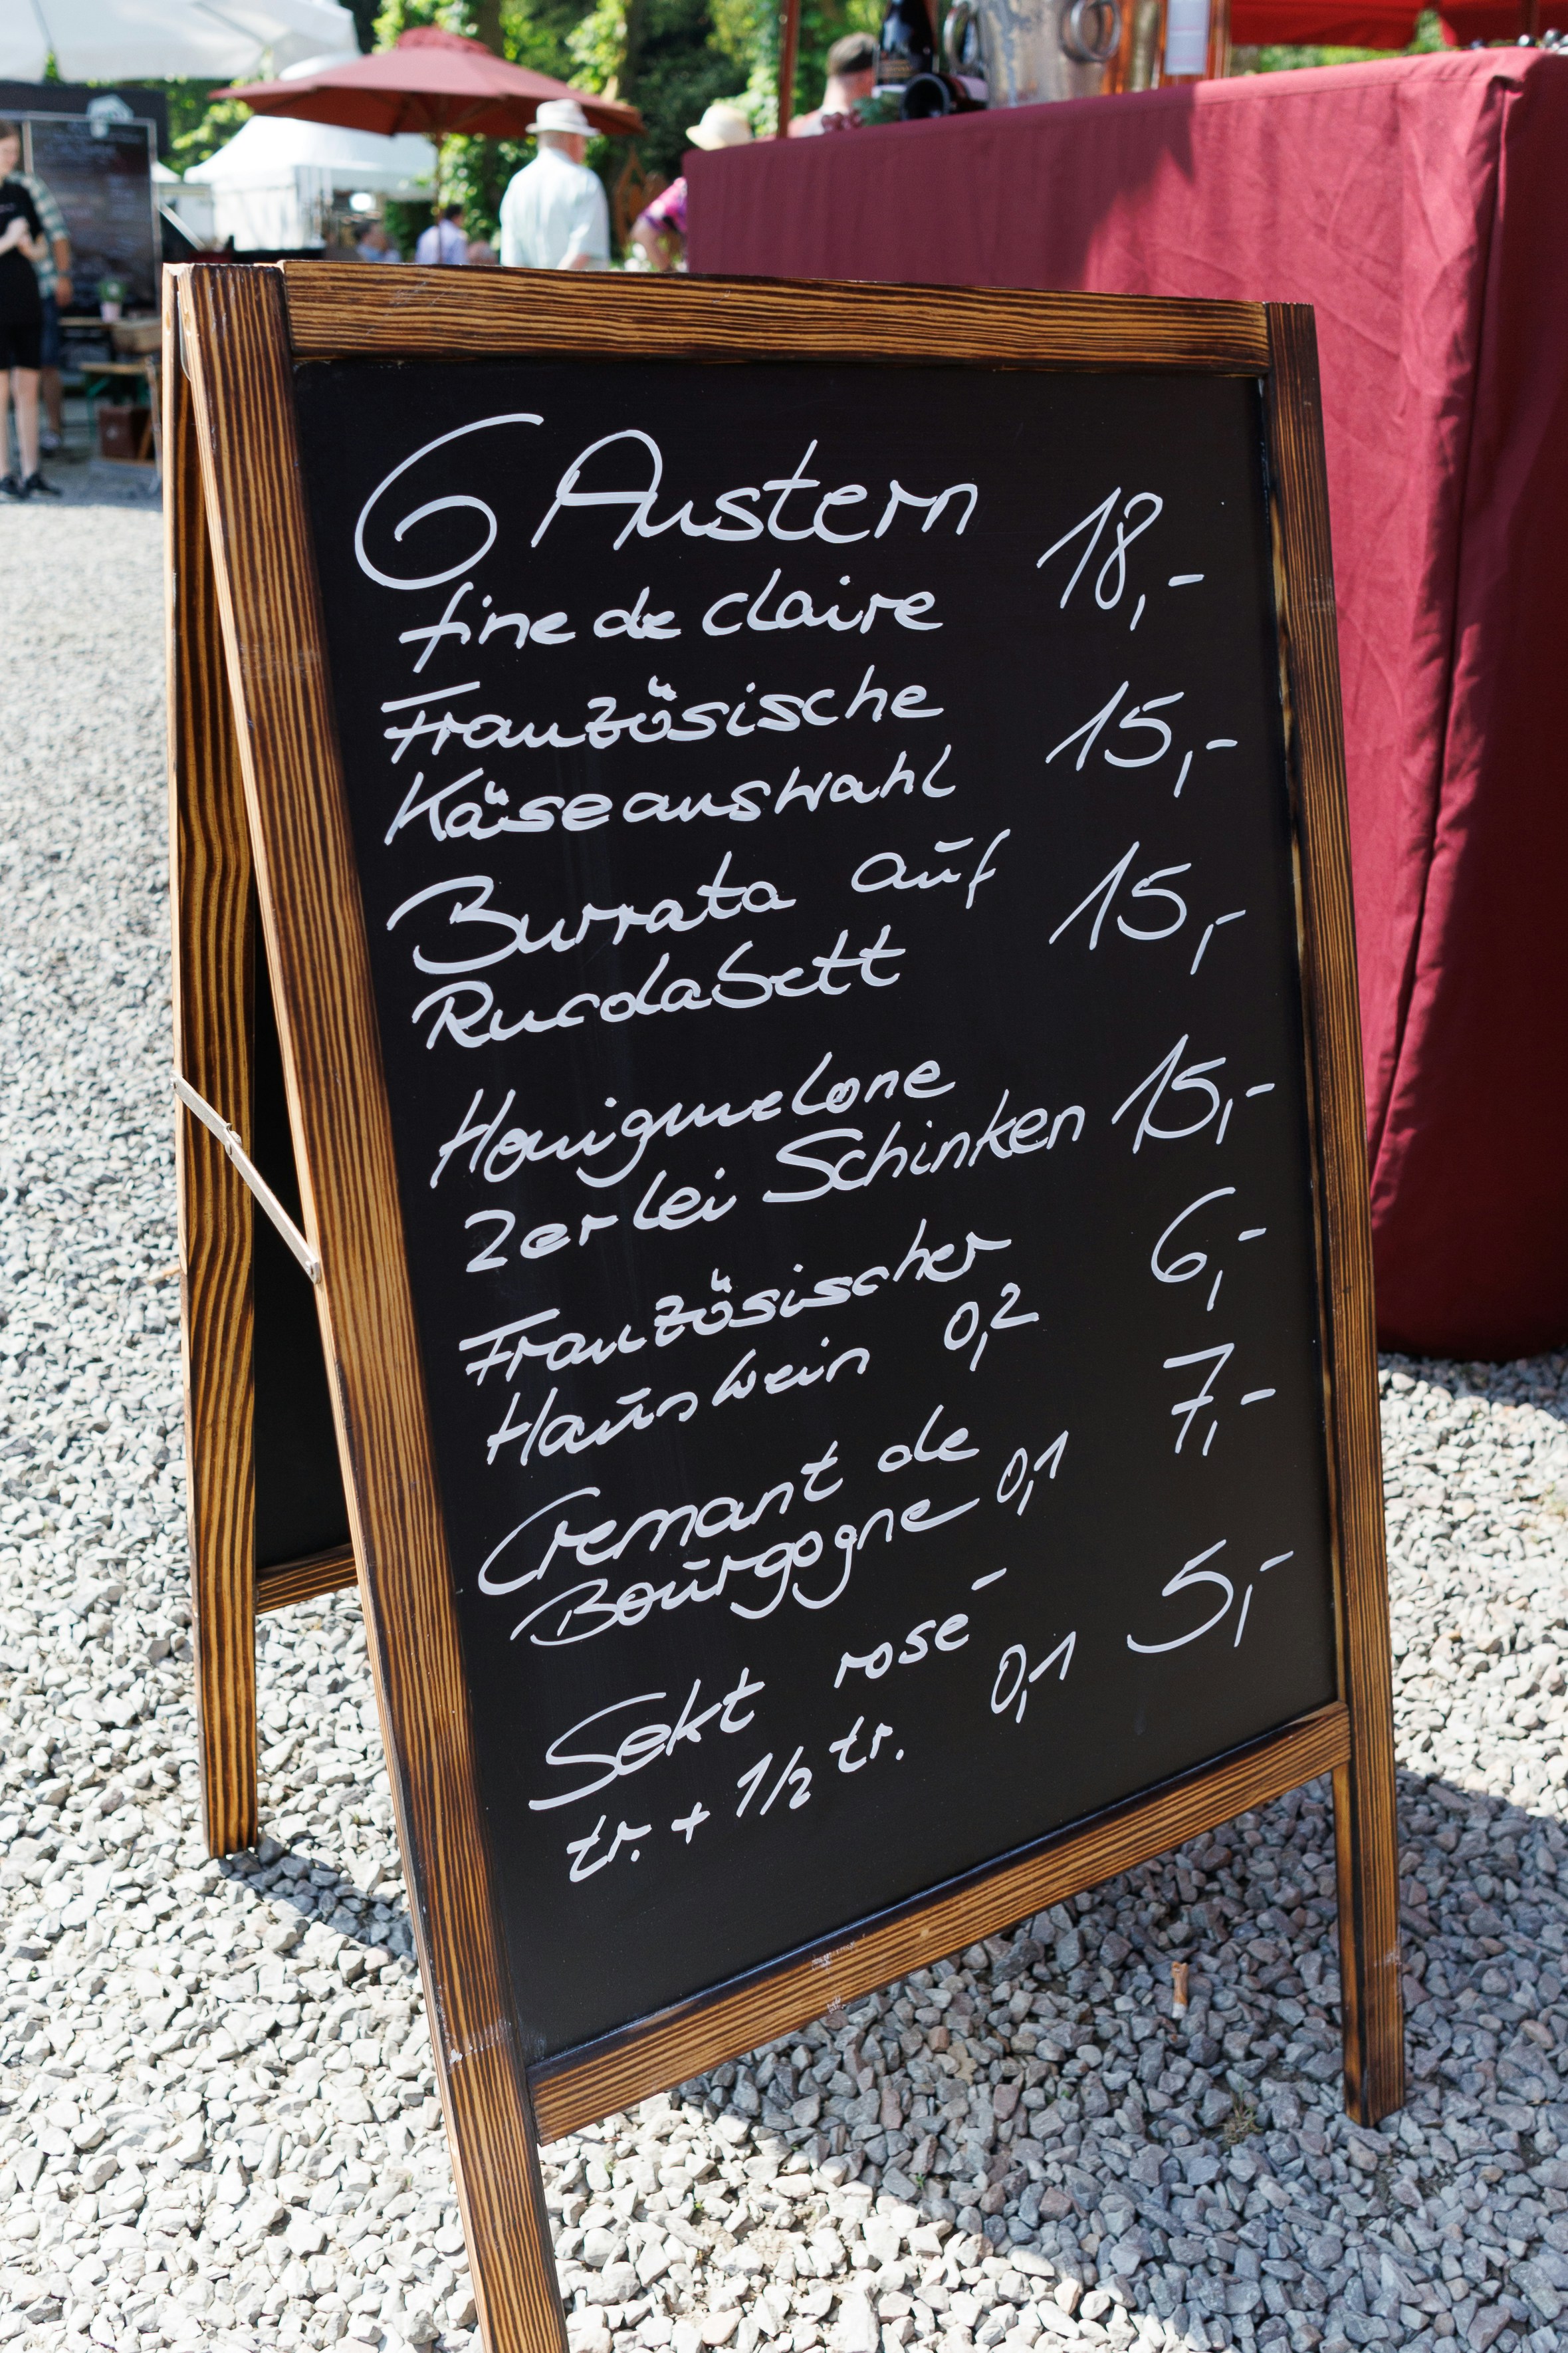 6 Austern 18,-
fine de claire
Französische
Käseauswahl 15,-
Burrata auf
Rucolabett 15,-
Honigmelone
2erlei Schinken 15,-
Französischer
Hauswein 0,2 6,-
Cremant de
Bourgogne 0,1 7,-
Sekt rosé
tr. + 1/2 tr. 0,1 5,-